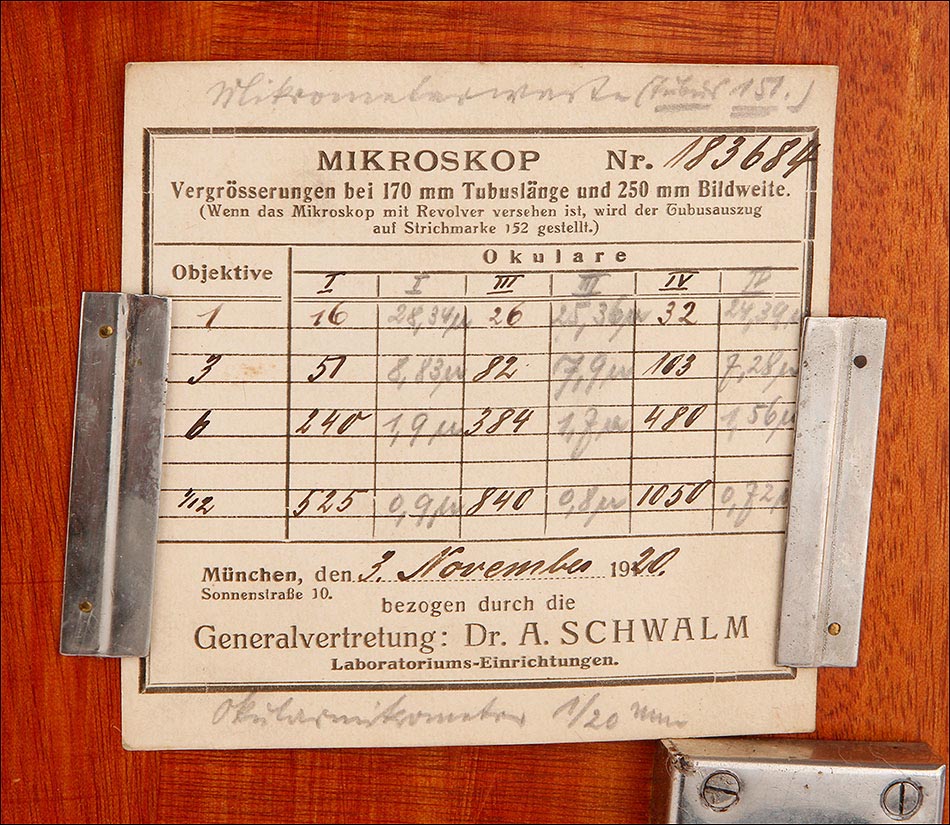 Mikrometerwerte (Tubus 151.)
MIKROSKOP Nr. 183684
Vergrösserungen bei 170 mm Tubuslänge und 250 mm Bildweite.
(Wenn das Mikroskop mit Revolver versehen ist, wird der Tubusauszug
auf Strichmarke 152 gestellt.)
Objektive
Okulare
I I III III IV IV
1 16 28,34µ 26 25,36µ 32 24,39µ
3 51 8,83µ 82 7,9µ 103 7,28µ
6 240 1,9µ 384 1,7µ 480 1,56µ
1/12 525 0,9µ 840 0,8µ 1050 0,72µ
München, den 3. November 1920.
Sonnenstraße 10.
bezogen durch die
Generalvertretung: Dr. A. SCHWALM
Laboratoriums-Einrichtungen.
Okularmikrometer 1/20 mm